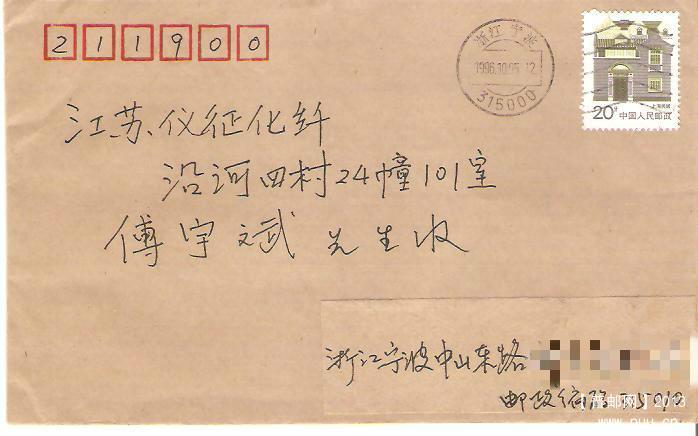 211900
浙江 宁波
1996.10.05.12
315000
上海民居
20分 中国人民邮政
江苏仪征化纤
沿河四村24幢101室
傅宇斌先生收
浙江宁波中山东路
邮政编码